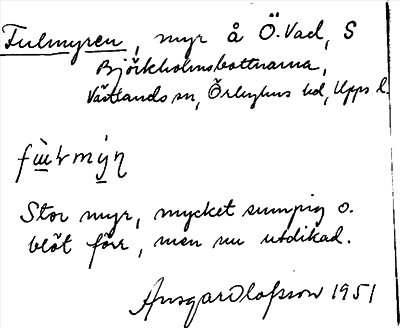 Fulmyren, myr å Ö. Vad, S
Björkholmsbottnarna,
Västlands sn, Örbyhus hd, Upps l.
Stor myr, mycket sumpig o.
blöt förr, men nu utdikad.
Ansgar Olofsson 1951